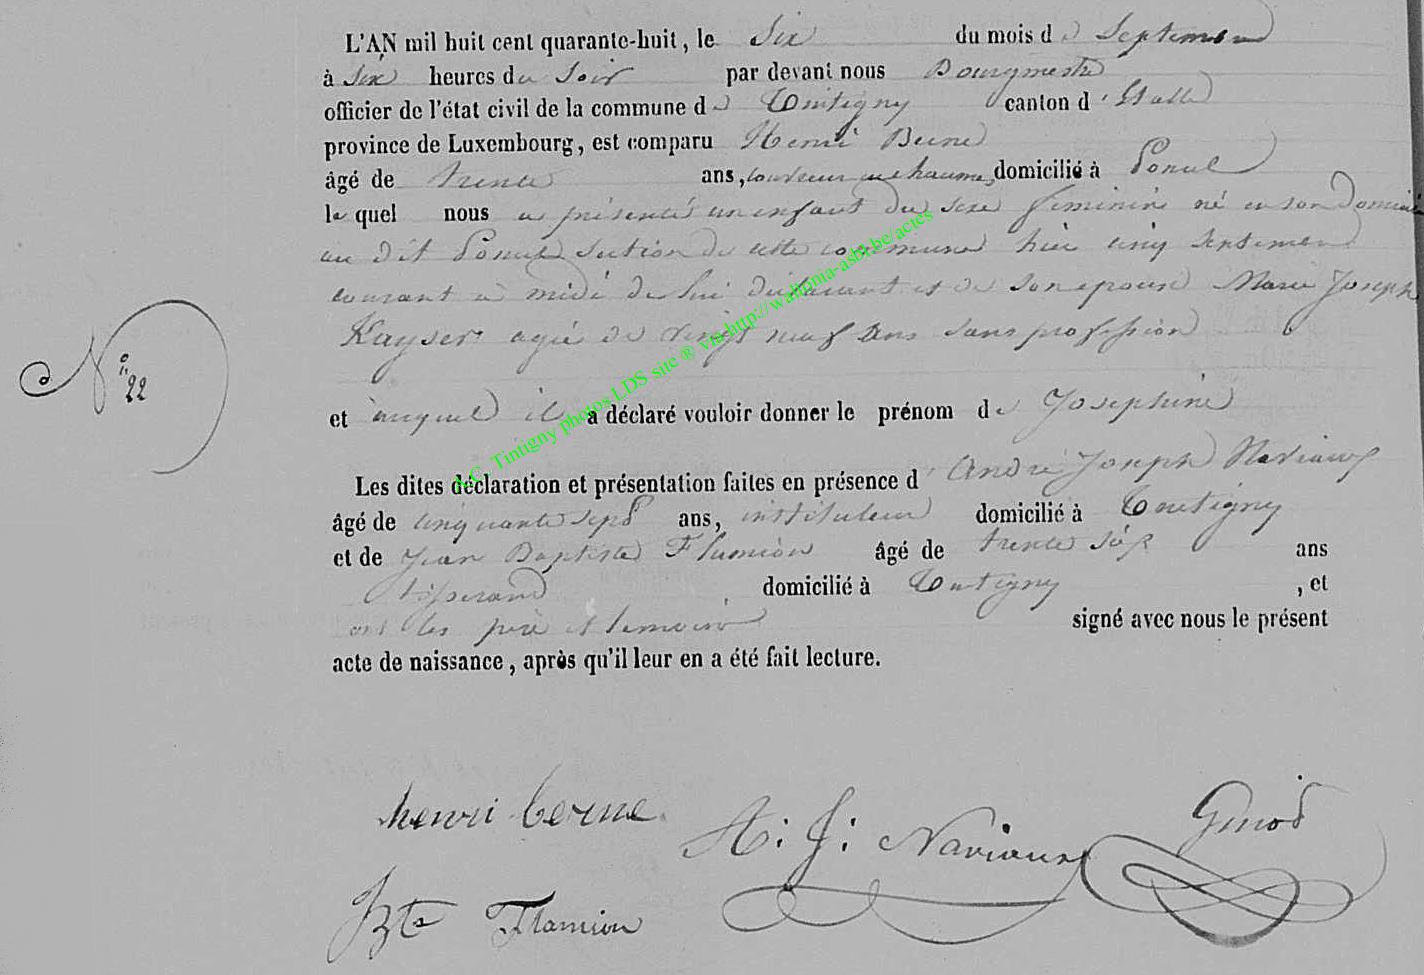 L'AN mil huit cent quarante-huit, le Six du mois de Septembre
à Six heures du Soir par devant nous Bourgmestre
officier de l'état civil de la commune de Tintigny canton d'Etalle
province de Luxembourg, est comparu Henri Berne
âgé de trente ans, couvreur en chaume, domicilié à Poncel
le quel nous a présenté un enfant du sexe féminin né en son domicile
au dit Poncel section de cette commune hier cinq Septembre
courant à midi de lui déclarant et de son epouse Marie Joseph
Kayser agée de vingt neuf ans sans profession
N° 22
et auquel il a déclaré vouloir donner le prénom de Josephine
Les dites déclaration et présentation faites en présence d'André Joseph Naviaux
âgé de cinquante sept ans, instituteur domicilié à Tintigny
et de Jean Baptiste Flamion âgé de trente six ans
tisserand domicilié à Tintigny, et
ont les père et temoins signé avec nous le présent
acte de naissance, après qu'il leur en a été fait lecture.
henri berne
A. J. Naviaux
Bte Flamion
A.C. Tintigny photos LDS site ® via http://wallonia-asbl.be/actes